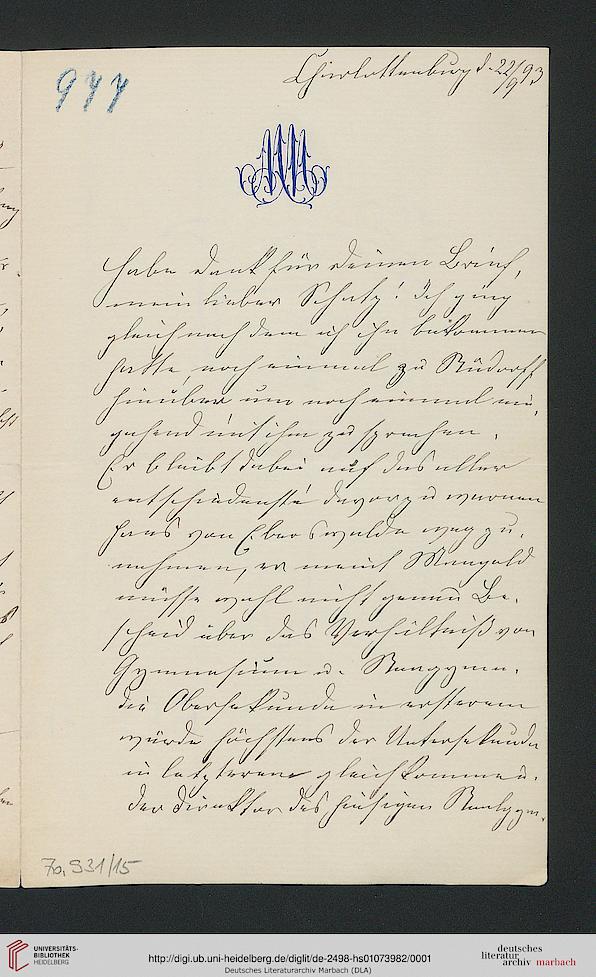 977
Charlottenburg d. 22/9 93
Habe Dank für Deinen Brief,
mein lieber Schatz! Ich ging
gleich nach dem ich ihn bekommen
hatte, noch einmal zu Rüdorff
hinüber um noch einmal ein,
gehend mit ihm zu sprechen.
Er bleibt dabei auf das aller
entschiedenste davor zu warnen
Hans von Eberswalde weg zu,
nehmen, er meint Mangold
müsse wohl nicht genau Be,
scheid über das Verhältniß von
Gymnasium u. Realgymn.
die Obersekunda in ersterem
würde höchstens der Untersekunda
in letzterem gleichkommen.
der Direktor des hiesigen Realgym.
70.931/15
UNIVERSITÄTS-
BIBLIOTHEK
HEIDELBERG
http://digi.ub.uni-heidelberg.de/diglit/de-2498-hs01073982/0001
Deutsches Literaturarchiv Marbach (DLA)
deutsches
literatur
archiv marbach